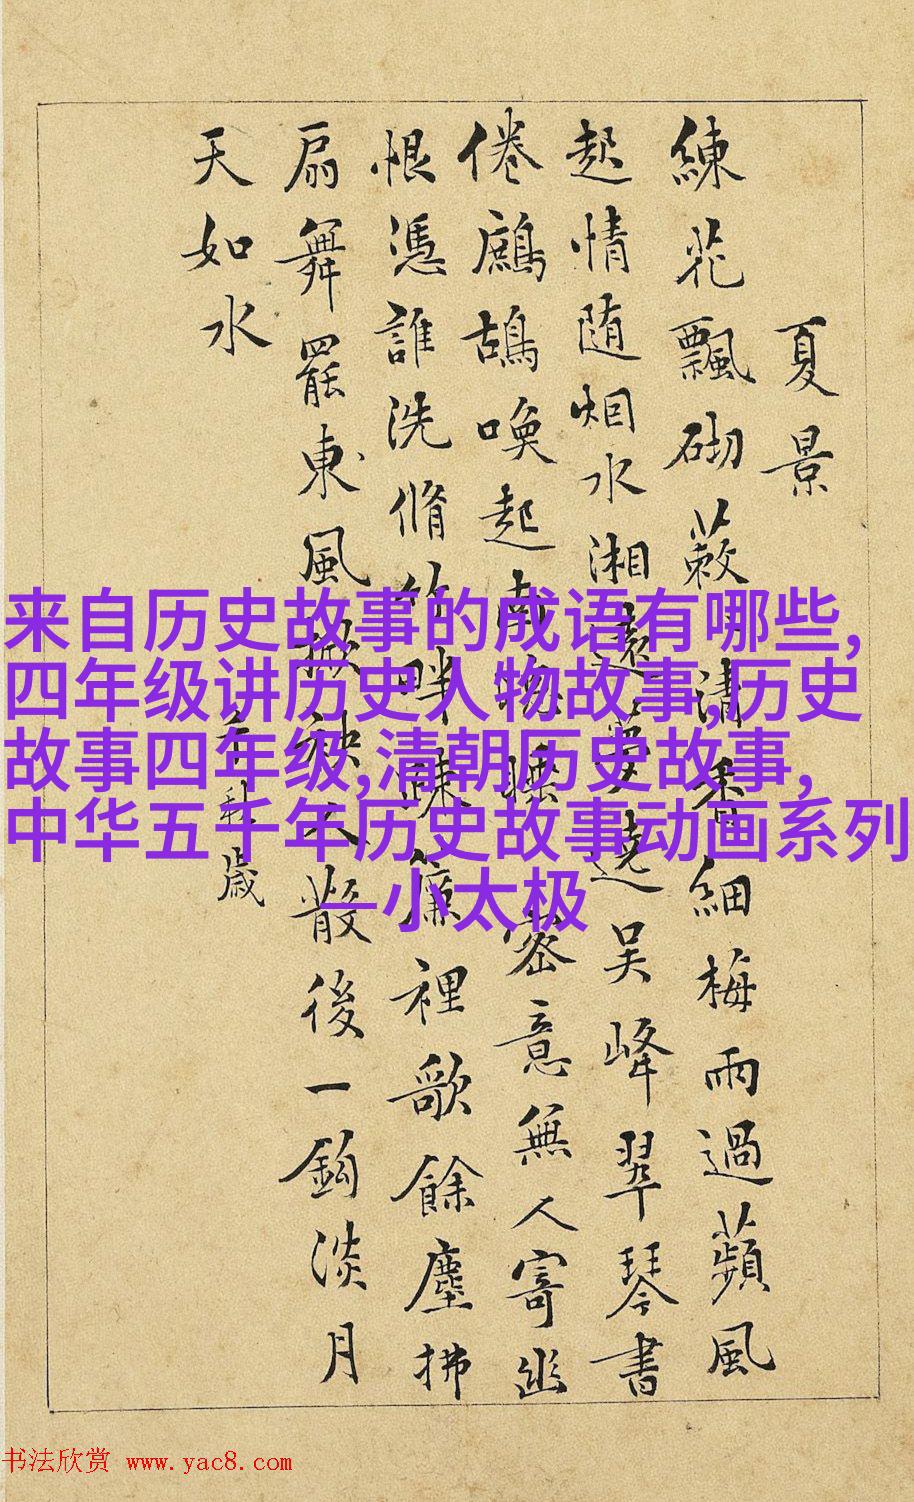 夏景
練花飄砌蔌〻清香細梅雨過蘋風
起情随烟水湘遠夢遶吴峰翠琴書
倦鷓鴣喚起南窗睡密意無人寄幽
恨憑誰洗脩竹畔疎簾裡歌餘塵拂
扇舞罷東風掀袂人散後一鈎淡月
天如水
千秋歲
来自历史故事的成语有哪些,
四年级讲历史人物故事,历史
故事四年级,清朝历史故事,
中华五千年历史故事动画系列
—小太极
书法欣赏 www.yac8.com